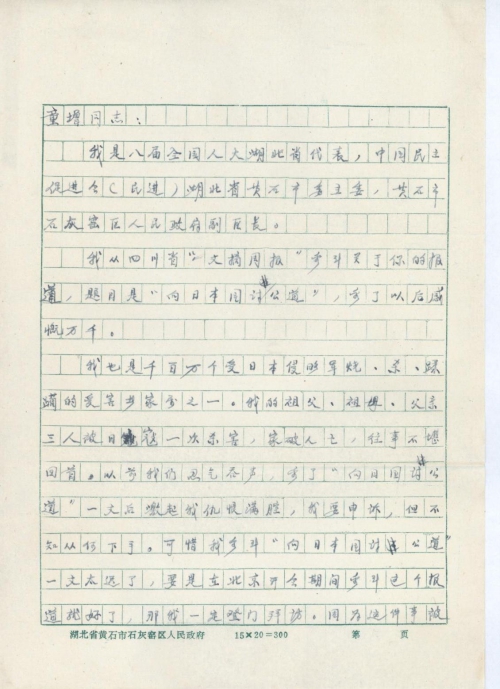 童增同志：
我是八届全国人大湖北省代表，中国民主
促进会（民进）湖北省黄石市委主委，黄石市
石灰窑区人民政府副区长。
我从四川省“文摘周报”看到了你的报
道，题目是“向日本国讨公道”，看了以后感
慨万千。
我也是千百万千受日本侵略军烧、杀、蹂
躏的受害者家属之一。我的祖父、祖母、父亲
三人被日寇一次杀害，家破人亡，往事不堪
回首。以前我们忍气吞声，看了“向日国讨公
道”一文后激起我仇恨满腔，我要申诉，但不
知从何下手。可惜我看到“向日本国讨公道”
一文太迟了，要是在北京开会期间看到这个报
道就好了，那我一定登门拜访。因为这件事被
湖北省黄石市石灰窑区人民政府 15×20=300 第 页